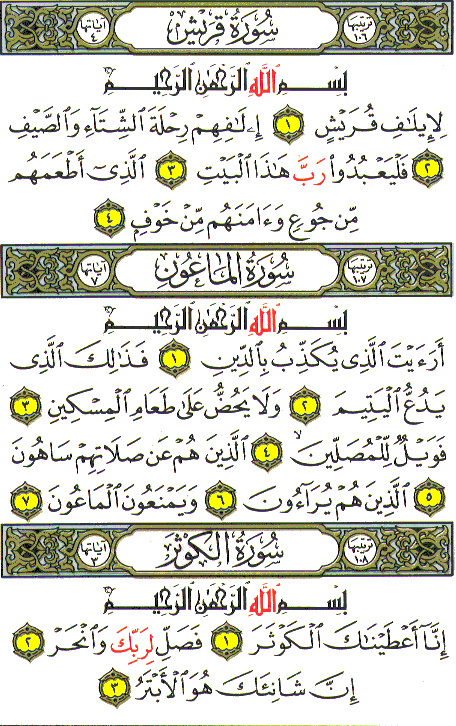 ترتيبها ١٠٦ سُورَةُ قُرَيْشٍ آياتها ٤
بِسْمِ ٱللَّهِ ٱلرَّحْمَٰنِ ٱلرَّحِيمِ
لِإِيلَٰفِ قُرَيْشٍ ١ إِۦلَٰفِهِمْ رِحْلَةَ ٱلشِّتَآءِ وَٱلصَّيْفِ
٢ فَلْيَعْبُدُوا۟ رَبَّ هَٰذَا ٱلْبَيْتِ ٣ ٱلَّذِىٓ أَطْعَمَهُم
مِّن جُوعٍ وَءَامَنَهُم مِّنْ خَوْفٍۭ ٤
ترتيبها ١٠٧ سُورَةُ الْمَاعُونِ آياتها ٧
بِسْمِ ٱللَّهِ ٱلرَّحْمَٰنِ ٱلرَّحِيمِ
أَرَءَيْتَ ٱلَّذِى يُكَذِّبُ بِٱلدِّينِ ١ فَذَٰلِكَ ٱلَّذِى
يَدُعُّ ٱلْيَتِيمَ ٢ وَلَا يَحُضُّ عَلَىٰ طَعَامِ ٱلْمِسْكِينِ ٣
فَوَيْلٌ لِّلْمُصَلِّينَ ٤ ٱلَّذِينَ هُمْ عَن صَلَاتِهِمْ سَاهُونَ
٥ ٱلَّذِينَ هُمْ يُرَآءُونَ ٦ وَيَمْنَعُونَ ٱلْمَاعُونَ ٧
ترتيبها ١٠٨ سُورَةُ الْكَوْثَرِ آياتها ٣
بِسْمِ ٱللَّهِ ٱلرَّحْمَٰنِ ٱلرَّحِيمِ
إِنَّآ أَعْطَيْنَٰكَ ٱلْكَوْثَرَ ١ فَصَلِّ لِرَبِّكَ وَٱنْحَرْ ٢
إِنَّ شَانِئَكَ هُوَ ٱلْأَبْتَرُ ٣